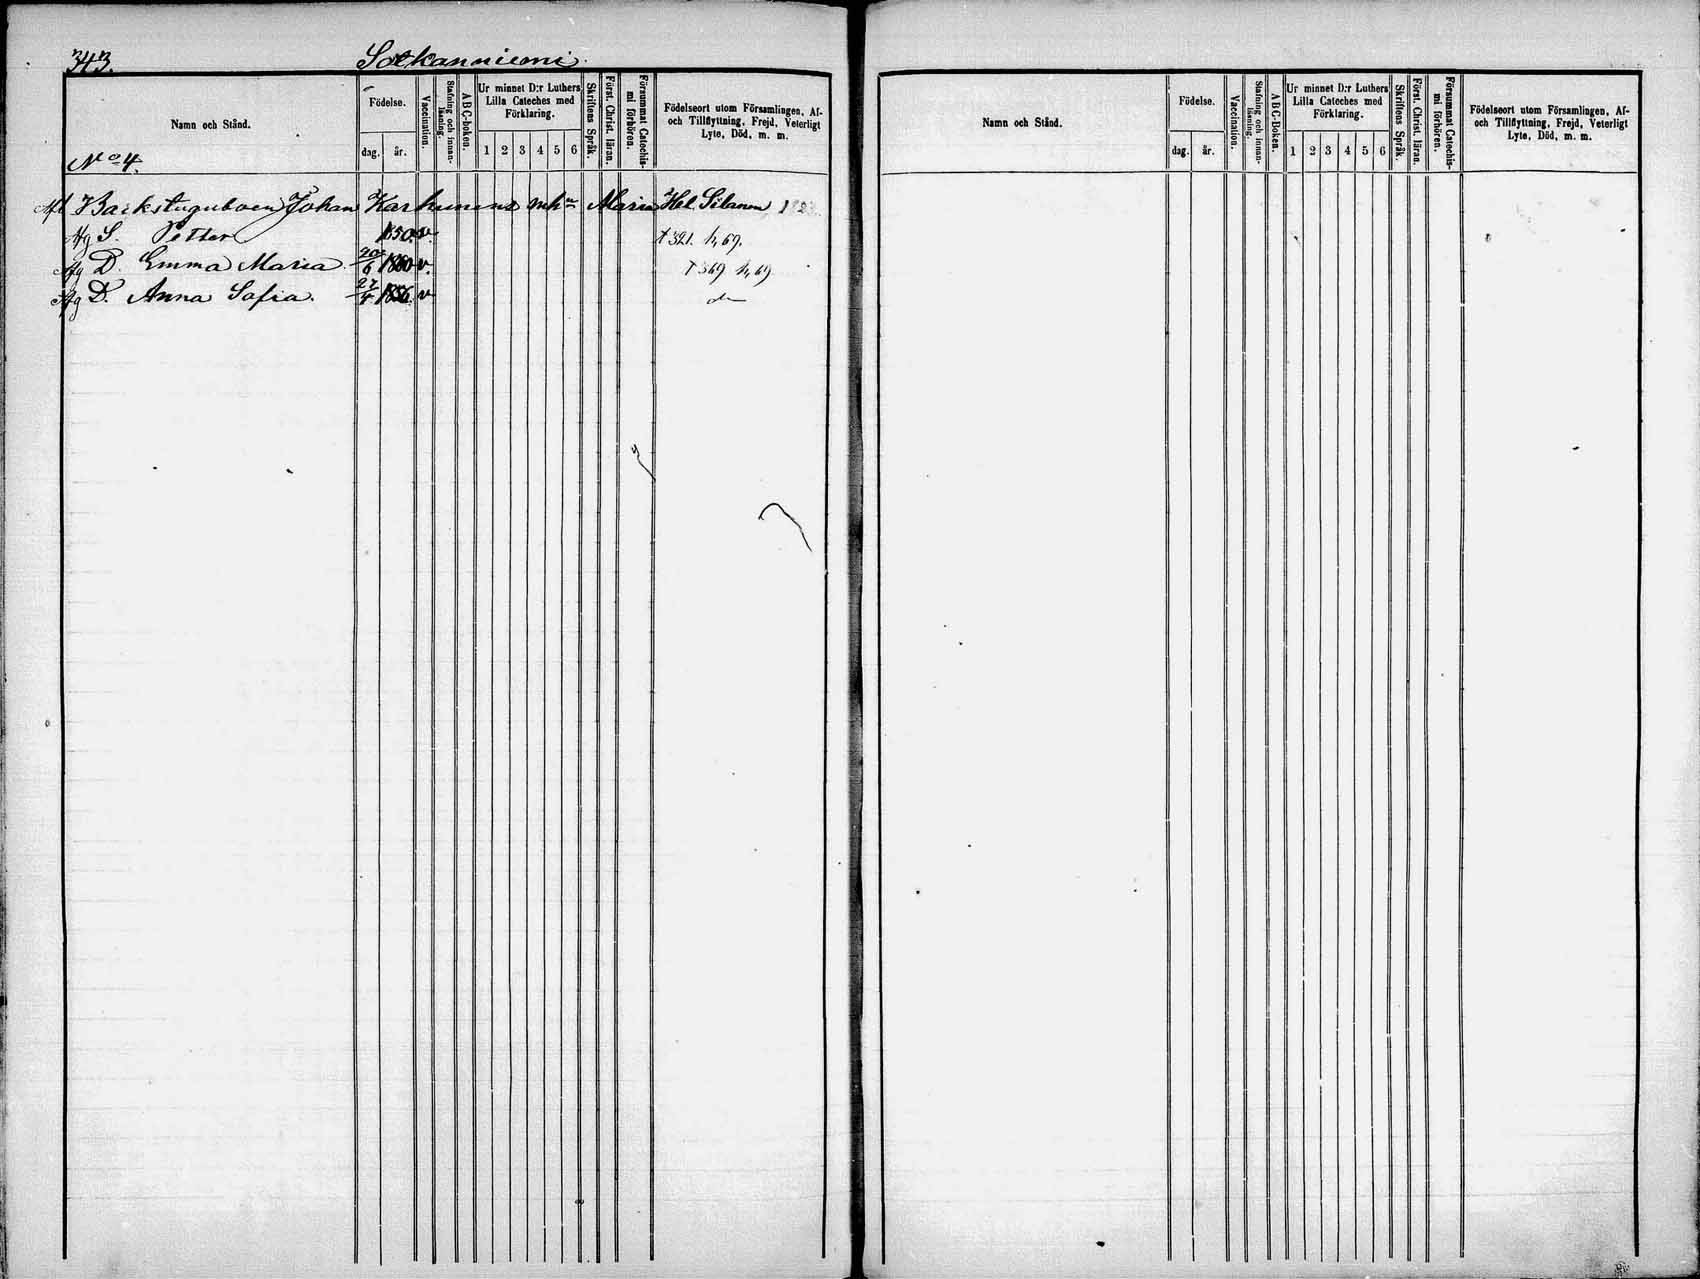 343. Sotkanniemi.
Namn och Stånd.
Födelse.
dag. år.
Vaccination.
Stafning och innanläsning.
ABC-boken.
Ur minnet D:r Luthers Lilla Cateches med Förklaring.
1 2 3 4 5 6
Skriftens Språk.
Först. Christ. läran.
Försummat Catechismi förhören.
Födelseort utom Församlingen, Af- och Tillflyttning, Frejd, Veterligt Lyte, Död, m. m.
No 4.
Afl Backstuguboen Johan Karhunens enka Maria Hel. Silanen
Afg S. Petter 1850. v. 321. 69.
Afg D. Emma Maria 20/6 1860 v. 369 69
Afg D. Anna Sofia. 27/4 1856. v
Namn och Stånd.
Födelse.
dag. år.
Vaccination.
Stafning och innanläsning.
ABC-Boken.
Ur minnet D:r Luthers Lilla Cateches med Förklaring.
1 2 3 4 5 6
Skriftens Språk.
Först. Christ. läran.
Försummat Catechismi förhören.
Födelseort utom Församlingen, Af- och Tillflyttning, Frejd, Veterligt Lyte, Död, m. m.